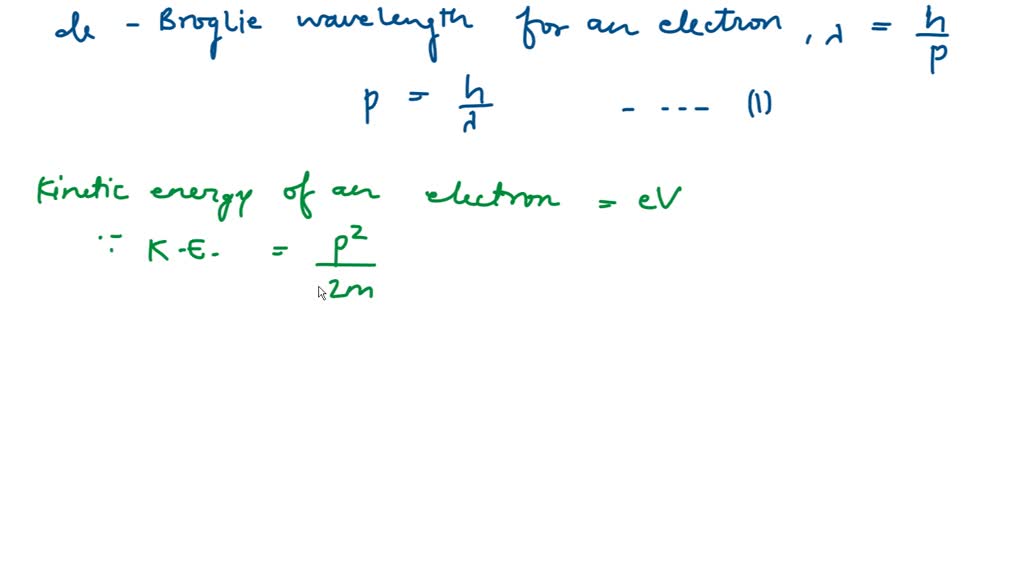 de - Broglie wavelength for an electron, λ = h/p
p = h/λ - --- (1)
Kinetic energy of an electron = eV
∵ K.E. = p²/2m